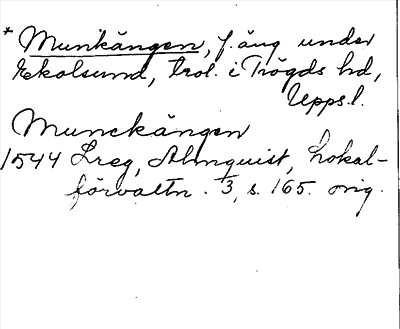 * Munkängen, f. äng under
Ekolsund, trol. i Trögds hd,
Upps. l.
Munckängen
1544 Lreg, Almquist, Lokal-
förvaltn. 3, s. 165. orig.